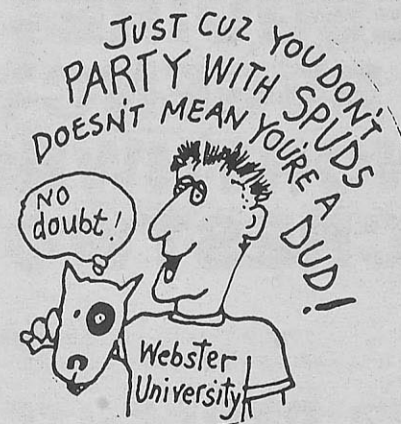 JUST CUZ YOU DON'T
PARTY WITH SPUDS
DOESN'T MEAN YOU'RE A DUD!
NO
doubt!
Webster
University